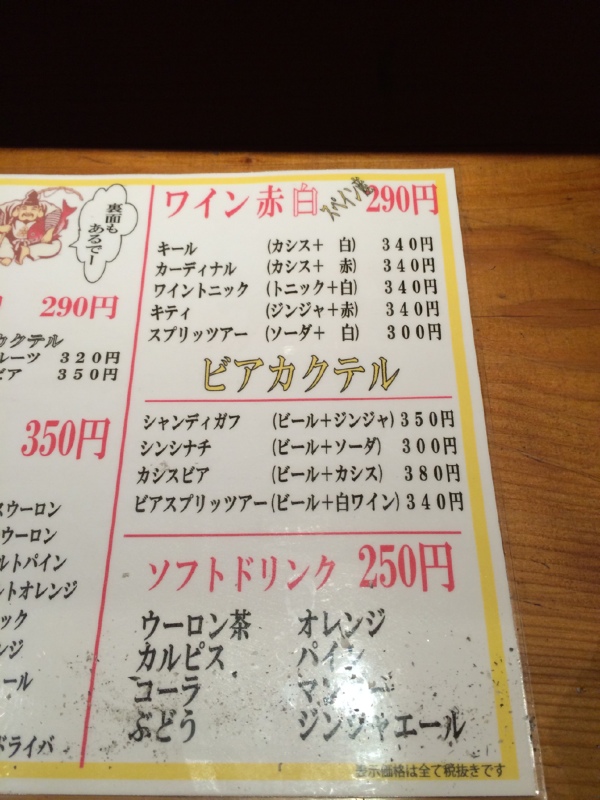 裏面も
あるでー
290円
カクテル
ルーツ 320円
ビア 350円
350円
スウーロン
ウーロン
ルトパイン
ルトオレンジ
ック
ンジ
ール
ドライバ
ワイン 赤 白 スペイン産 290円
キール (カシス+ 白) 340円
カーディナル (カシス+ 赤) 340円
ワイントニック (トニック+白) 340円
キティ (ジンジャ+赤) 340円
スプリッツアー (ソーダ+ 白) 300円
ビアカクテル
シャンディガフ (ビール+ジンジャ) 350円
シンシナチ (ビール+ソーダ) 300円
カシスビア (ビール+カシス) 380円
ビアスプリッツアー (ビール+白ワイン) 340円
ソフトドリンク 250円
ウーロン茶 オレンジ
カルピス パイン
コーラ
ぶどう ジンジャエール
表示価格は全て税抜きです